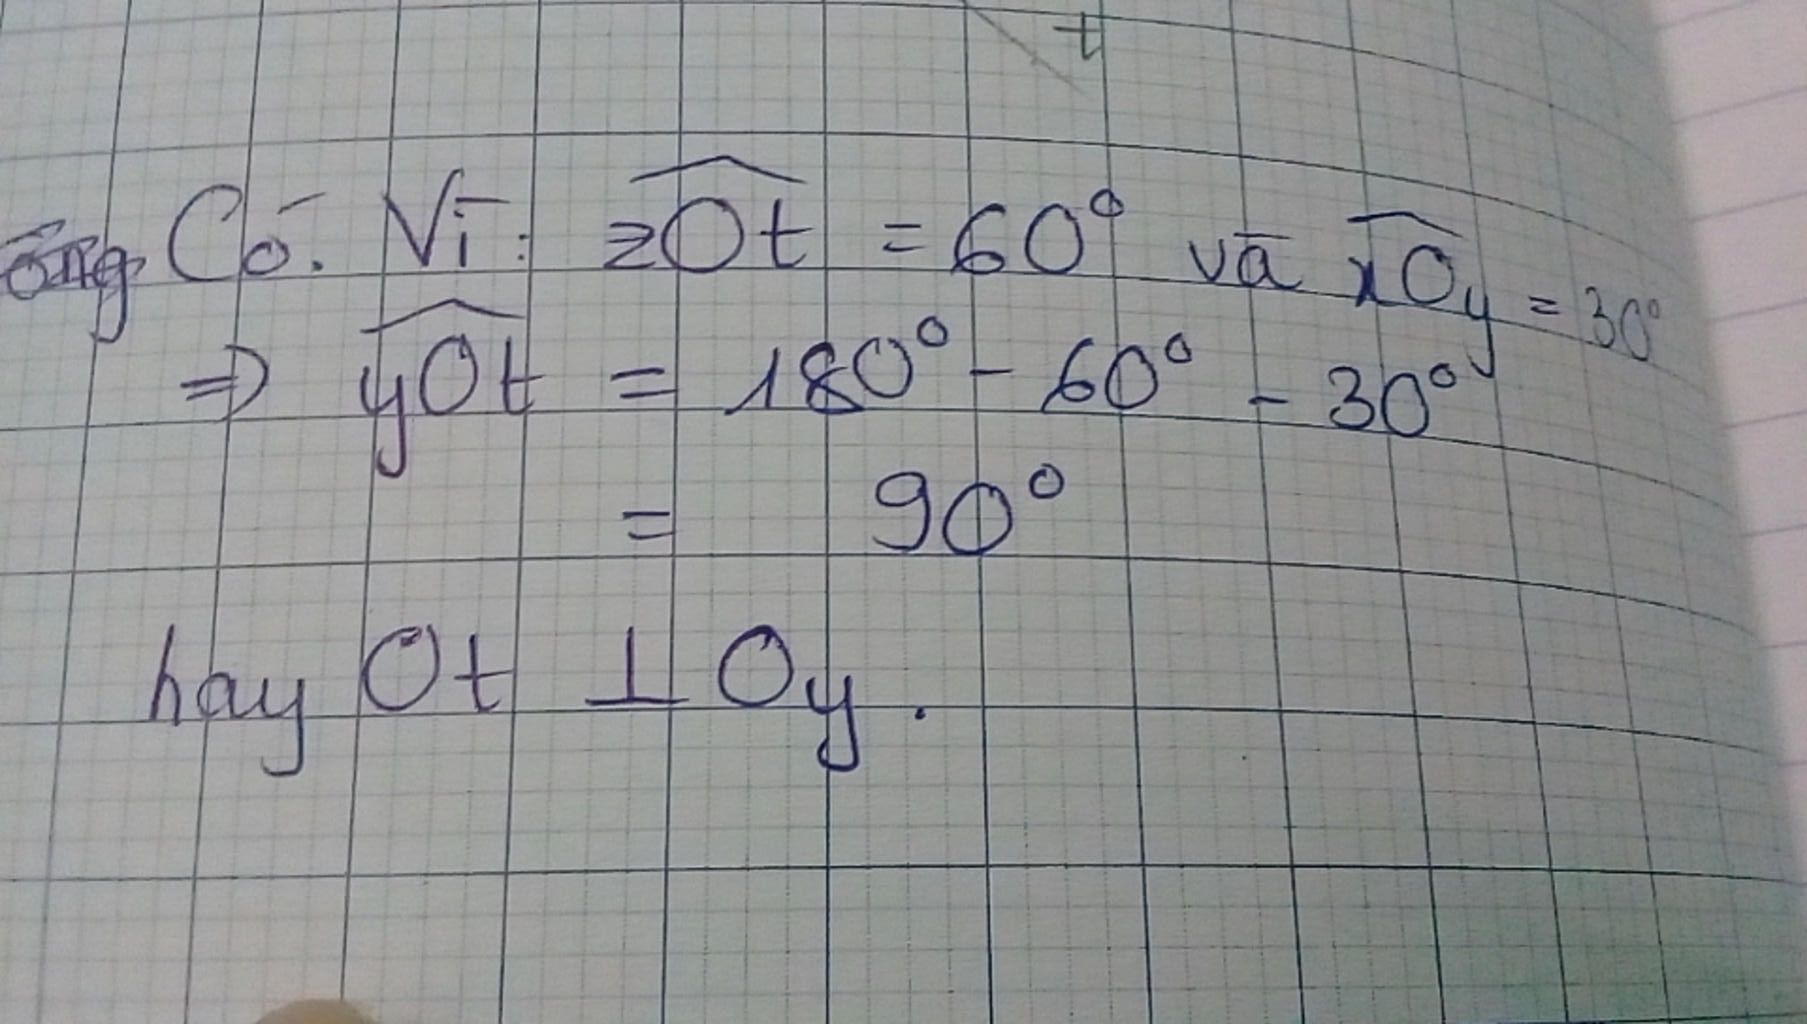 t
Có. Vì: zOt = 60° và xOy = 30°
⇒ yOt = 180° - 60° - 30°
= 90°
hay Ot ⊥ Oy.